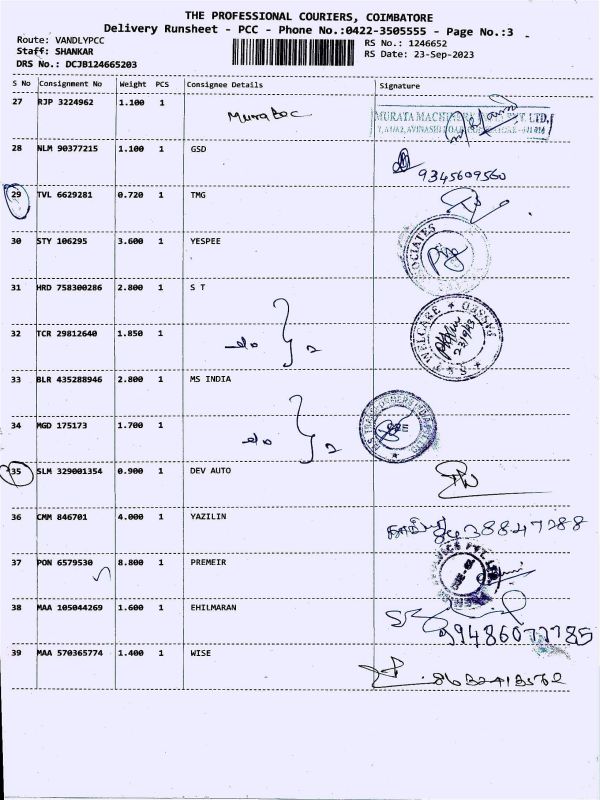 THE PROFESSIONAL COURIERS, COIMBATORE
Delivery Runsheet - PCC - Phone No.:0422-3505555 - Page No.:3
Route: VANDLYPCC
Staff: SHANKAR
DRS No.: DCJB124665203
RS No.: 1246652
RS Date: 23-Sep-2023
S No Consignment No Weight PCS Consignee Details Signature
27 RJP 3224962 1.100 1
MURATA MACHINERY PVT. LTD,
28 NLM 90377215 1.100 1 GSD
9345609560
29 TVL 6629281 0.720 1 TMG
30 STY 106295 3.600 1 YESPEE
31 HRD 758300286 2.800 1 S T
32 TCR 29812640 1.850 1
2
WELCARE
33 BLR 435288946 2.800 1 MS INDIA
34 MGD 175173 1.700 1
2
35 SLM 329001354 0.900 1 DEV AUTO
36 CMM 846701 4.000 1 YAZILIN
37 PON 6579530 8.800 1 PREMEIR
38 MAA 105044269 1.600 1 EHILMARAN
39 MAA 570365774 1.400 1 WISE